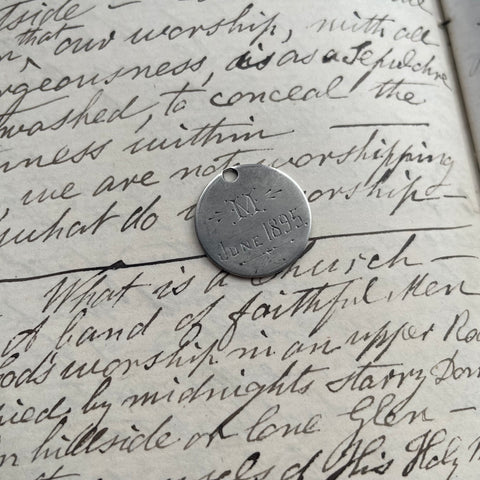 tside -
that
our worship, with all
rgeousness, is as a Sepulchre
washed, to conceal the
within
we are not worshipping
what do orship -
M.
JUNE 1895.
What is a Church -
A band of faithful Men
od's worship in an upper Roo
by midnights starry Dom
n hillside or lone Glen -
selves of His Holy